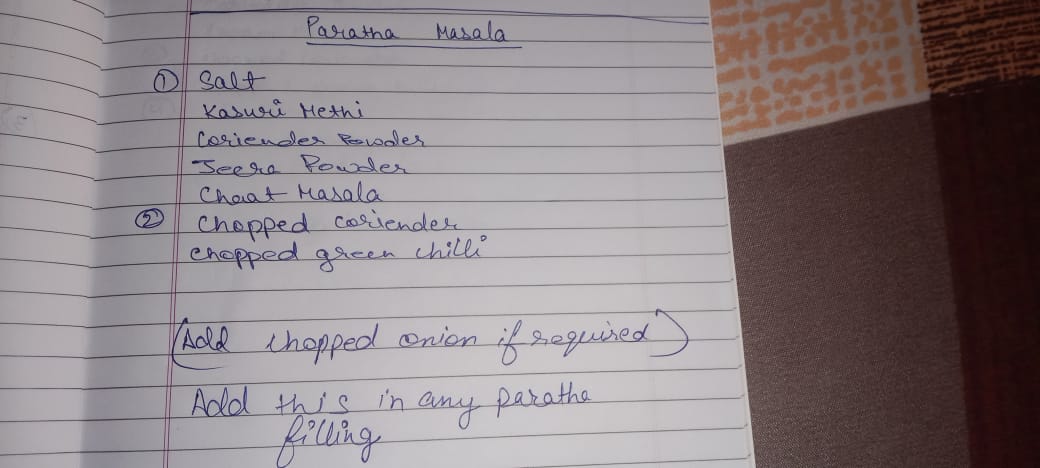 Paratha Masala
① Salt
Kasuri Methi
Coriender Powder
Jeera Powder
Chaat Masala
② Chopped coriender
chopped green chilli
(Add chopped onion if required)
Add this in any paratha
filling